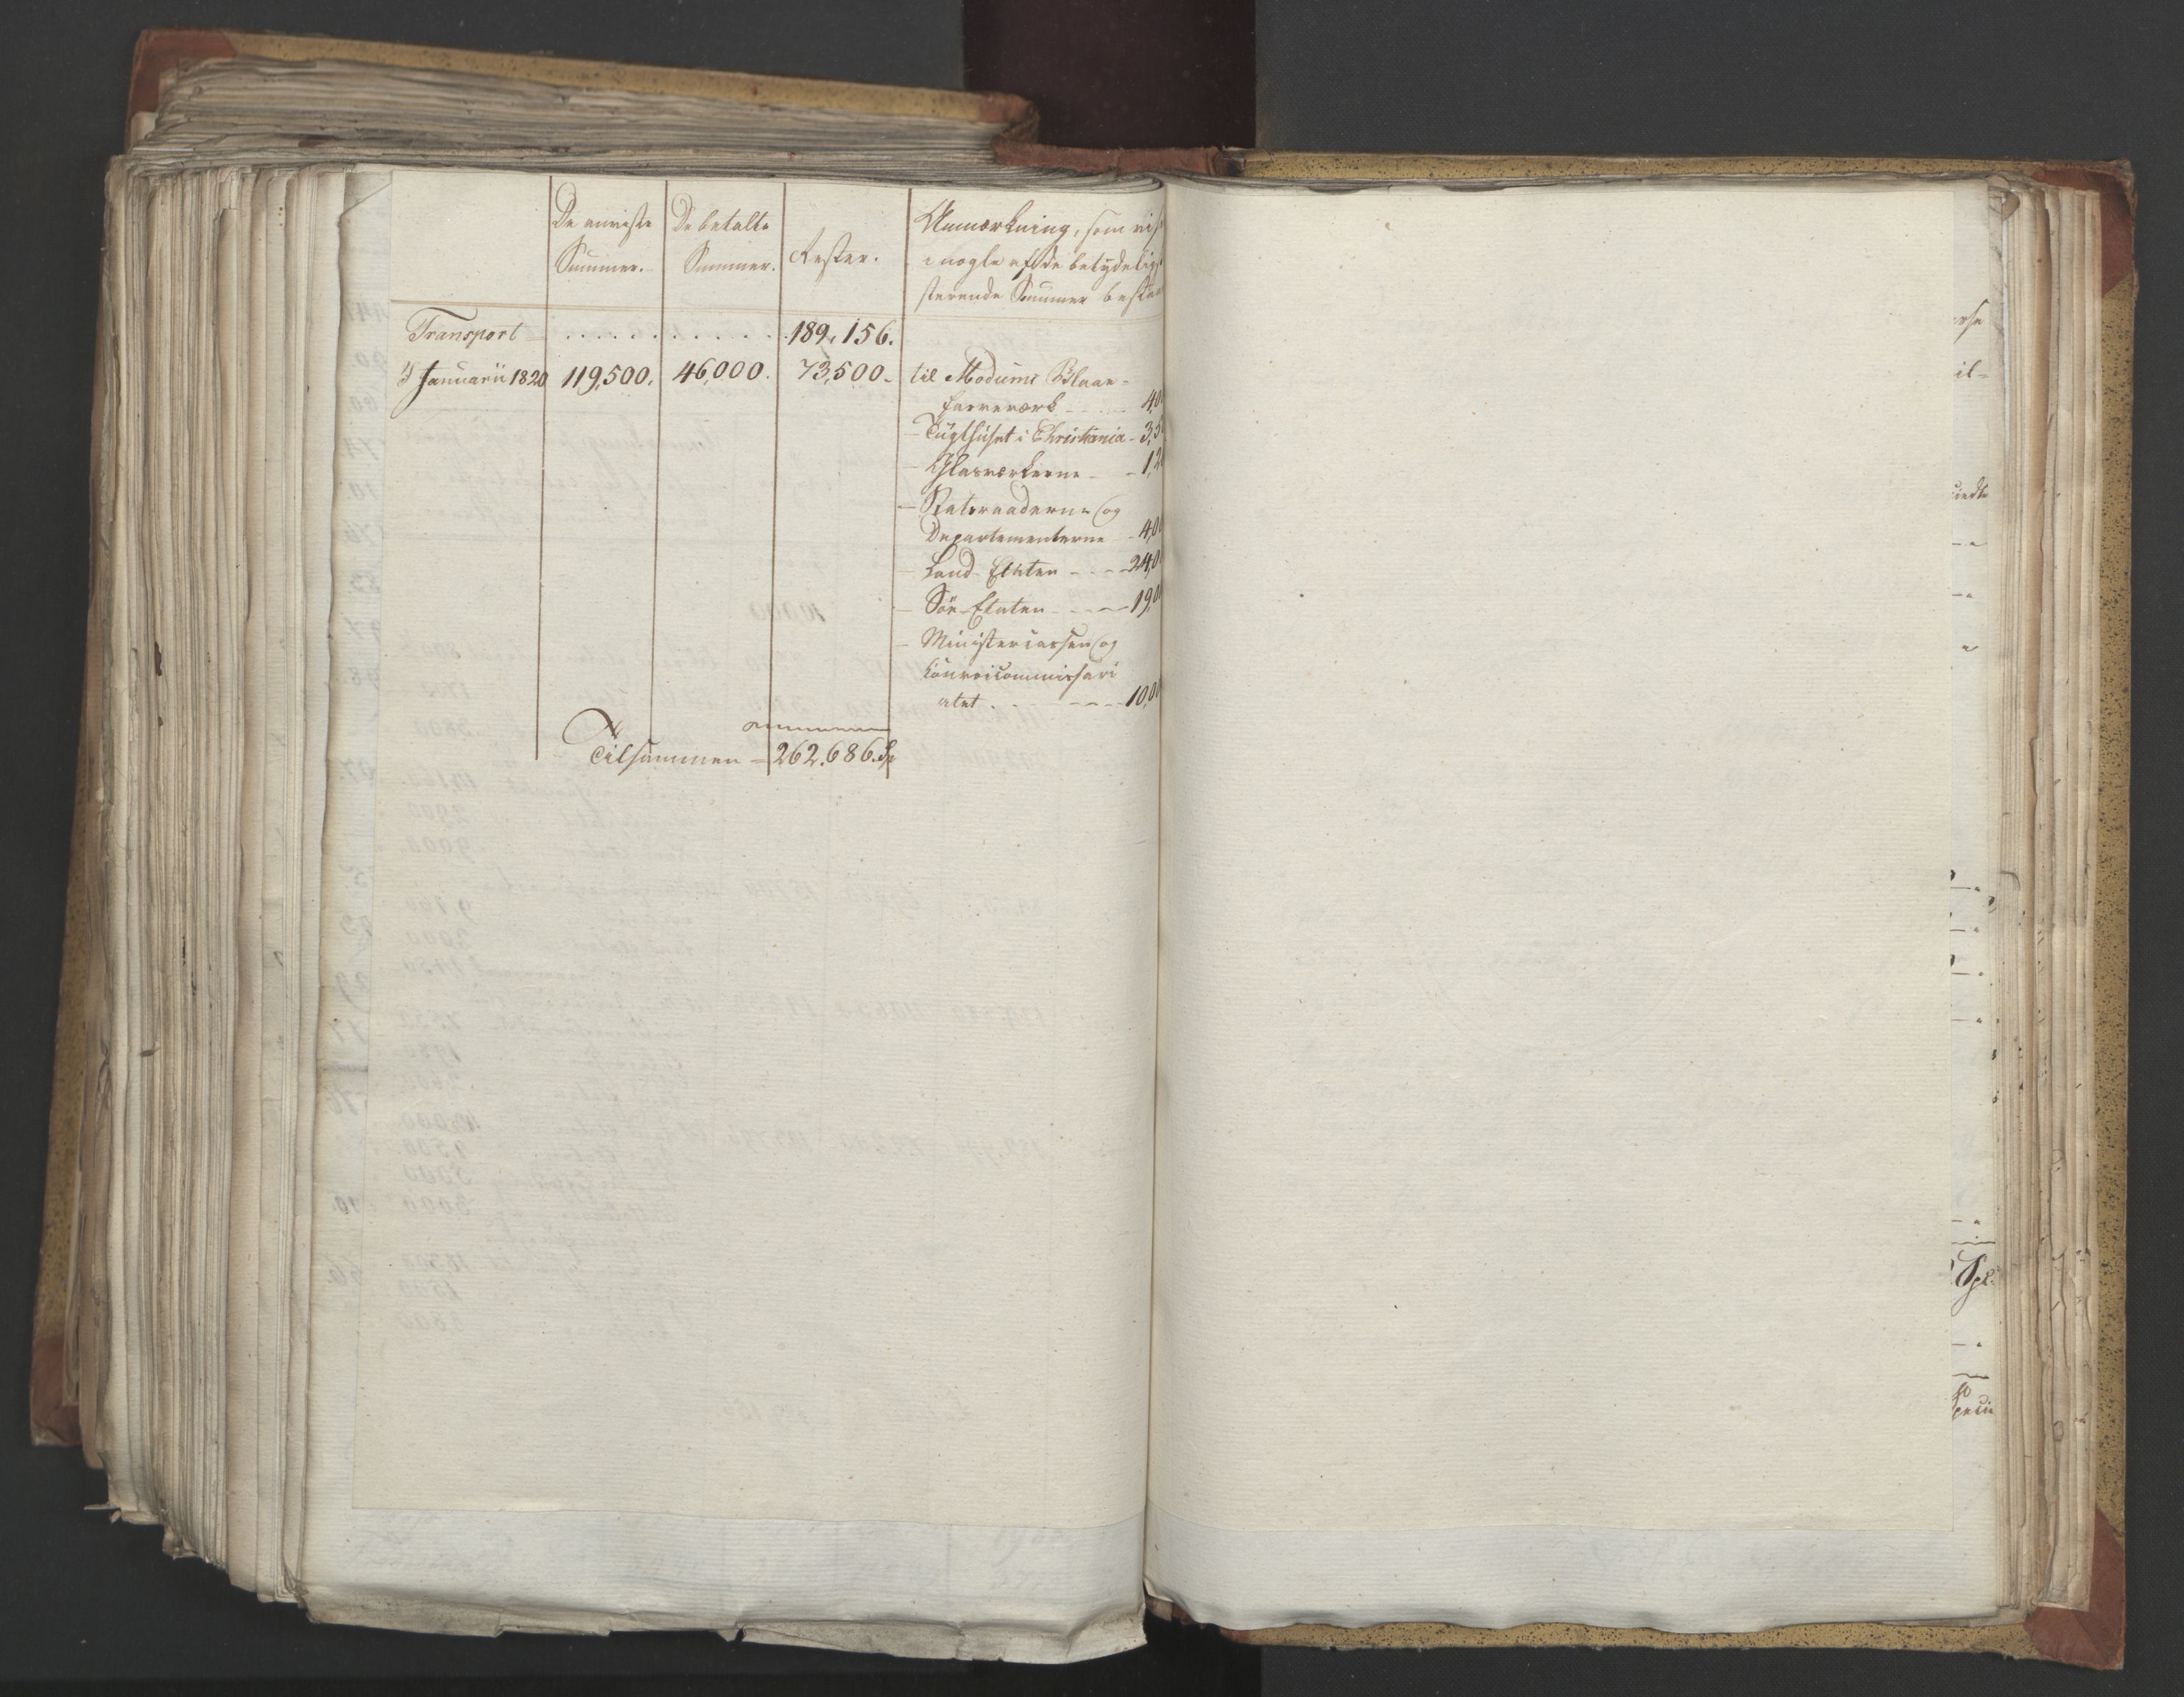 De anviste
Summer.
De betalte
Summer.
Rester.
Anmærkning, som vis
i nogle af de betydelig
sterende Summer bestaa
Transport . . . . . . . . . . . 189,156.
Januarii 1820 119,500. 46,000. 73,500. til Modums Blaae-
farveværk - - - 4,0
- Tugthuset i Christiania - 3,5
- Glasværkerne - - 1,2
- Statsraaderne og
Departementerne - 4,0
- Land-Etaten - - - 24,0
- Söe-Etaten - - - 19,0
- Ministercassen og
Convoicommissari
atet . - - - 10,0
Tilsammen = 262.686. Sp
il=
Spl.
Specie